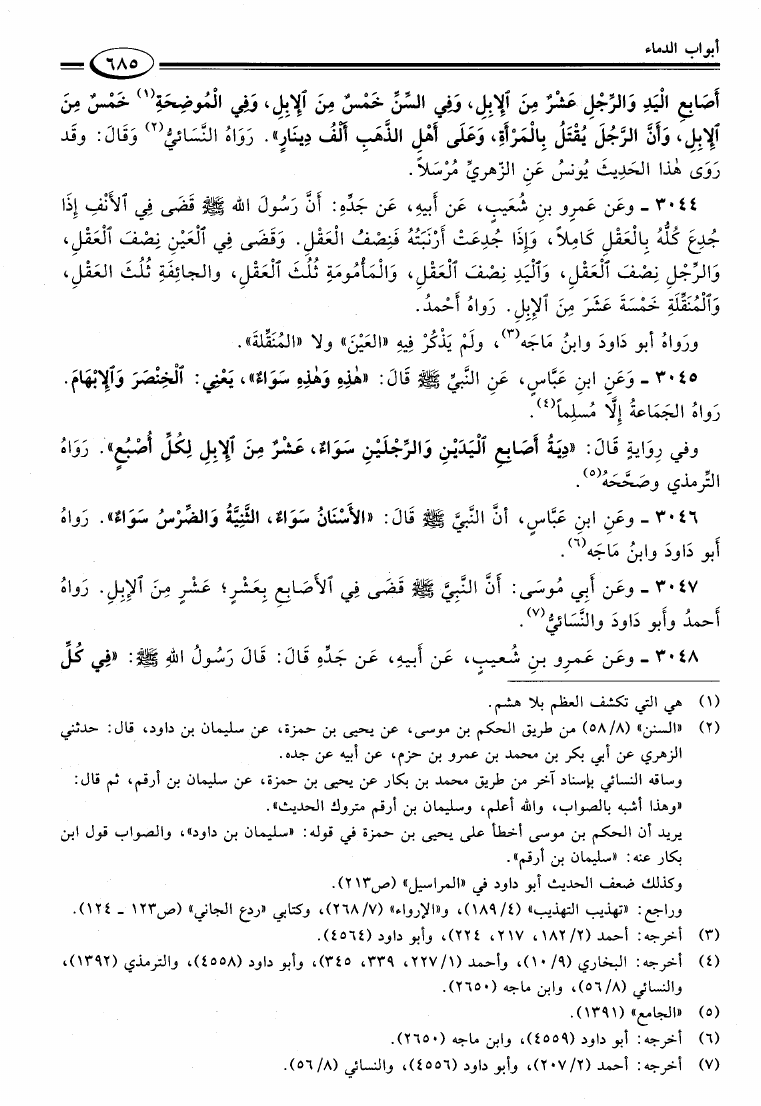 أبواب الدماء
٦٨٥
أَصَابِعِ الْيَدِ وَالرِّجْلِ عَشْرٌ مِنَ الإِبِلِ، وَفِي السِّنِّ خَمْسٌ مِنَ الإِبِلِ، وَفِي الْمُوضِحَةِ(١) خَمْسٌ مِنَ
الإِبِلِ، وَأَنَّ الرَّجُلَ يُقْتَلُ بِالْمَرْأَةِ، وَعَلَى أَهْلِ الذَّهَبِ أَلْفُ دِينَارٍ». رَوَاهُ النَّسَائِيُّ(٢) وَقَالَ: وقَد
رَوَى هٰذا الحَدِيثَ يُونسُ عَنِ الزّهريِّ مُرْسَلاً.
٣٠٤٤ ـ وعَن عَمرِو بنِ شُعَيبٍ، عَن أَبيهِ، عَن جَدِّهِ: أَنَّ رَسُولَ الله ﷺ قَضَى فِي الأَنْفِ إِذَا
جُدِعَ كُلُّهُ بِالْعَقْلِ كَامِلاً، وَإِذَا جُدِعَتْ أَرْنَبَتُهُ فَنِصْفُ الْعَقْلِ. وَقَضَى فِي الْعَيْنِ نِصْفَ الْعَقْلِ،
وَالرِّجْلِ نِصْفَ الْعَقْلِ، وَالْيَدِ نِصْفَ الْعَقْلِ، وَالْمَأْمُومَةِ ثُلُثَ الْعَقْلِ، والجائِفَةِ ثُلُثَ العَقْلِ،
وَالْمُنَقِّلَةِ خَمْسَةَ عَشَرَ مِنَ الإِبِلِ. رَواهُ أَحْمدُ.
ورَوَاهُ أبو دَاودَ وابنُ مَاجَه(٣)، ولَمْ يَذْكُرْ فِيهِ «العَيْنَ» ولا «المُنَقِّلةَ».
٣٠٤٥ ـ وَعَنِ ابنِ عَبَّاسٍ، عَنِ النَّبيِّ ﷺ قَالَ: «هٰذِهِ وَهٰذِهِ سَوَاءٌ»، يَعْنِي: الْخِنْصَرَ وَالإِبْهَامَ.
رَواهُ الجَمَاعةُ إِلَّا مُسلِماً(٤).
وفي رِوَايةٍ قَالَ: «دِيَةُ أَصَابِعِ الْيَدَيْنِ وَالرِّجْلَيْنِ سَوَاءٌ، عَشْرٌ مِنَ الإِبِلِ لِكُلِّ أُصْبُعٍ». رَوَاهُ
التِّرمذي وصَحَّحَهُ(٥).
٣٠٤٦ ـ وعَنِ ابنِ عَبَّاسٍ، أنَّ النَّبيَّ ﷺ قَالَ: «الأَسْنَانُ سَوَاءٌ، الثَّنِيَّةُ وَالضِّرْسُ سَوَاءٌ». رَواهُ
أَبو دَاودَ وابنُ مَاجَه(٦).
٣٠٤٧ ـ وعَن أَبي مُوسَى: أنَّ النَّبيَّ ﷺ قَضَى فِي الأَصَابِعِ بِعَشْرٍ؛ عَشْرٍ مِنَ الإِبِلِ. رَواهُ
أَحمدُ وأَبو دَاودَ والنَّسَائيُّ(٧).
٣٠٤٨ ـ وعَن عَمرِو بنِ شُعيبٍ، عَن أَبيهِ، عَن جَدِّهِ قَالَ: قَالَ رَسُولُ اللهِ ﷺ: «فِي كُلِّ
(١) هي التي تكشف العظم بلا هشم.
(٢) «السنن» (٥٨/٨) من طريق الحكم بن موسى، عن يحيى بن حمزة، عن سليمان بن داود، قال: حدثني
الزهري عن أبي بكر بن محمد بن عمرو بن حزم، عن أبيه عن جده.
وساقه النسائي بإسناد آخر من طريق محمد بن بكار عن يحيى بن حمزة، عن سليمان بن أرقم، ثم قال:
«وهذا أشبه بالصواب، والله أعلم، وسليمان بن أرقم متروك الحديث».
يريد أن الحكم بن موسى أخطأ على يحيى بن حمزة في قوله: «سليمان بن داود»، والصواب قول ابن
بكار عنه: «سليمان بن أرقم».
وكذلك ضعف الحديث أبو داود في «المراسيل» (ص٢١٣).
وراجع: «تهذيب التهذيب» (١٨٩/٤)، و«الإرواء» (٢٦٨/٧)، وكتابي «ردع الجاني» (ص١٢٣ ـ ١٢٤).
(٣) أخرجه: أحمد (١٨٢/٢، ٢١٧، ٢٢٤)، وأبو داود (٤٥٦٤).
(٤) أخرجه: البخاري (١٠/٩)، وأحمد (٢٢٧/١، ٣٣٩، ٣٤٥)، وأبو داود (٤٥٥٨)، والترمذي (١٣٩٢)،
والنسائي (٥٦/٨)، وابن ماجه (٢٦٥٠).
(٥) «الجامع» (١٣٩١).
(٦) أخرجه: أبو داود (٤٥٥٩)، وابن ماجه (٢٦٥٠).
(٧) أخرجه: أحمد (٢٠٧/٢)، وأبو داود (٤٥٥٦)، والنسائي (٥٦/٨).